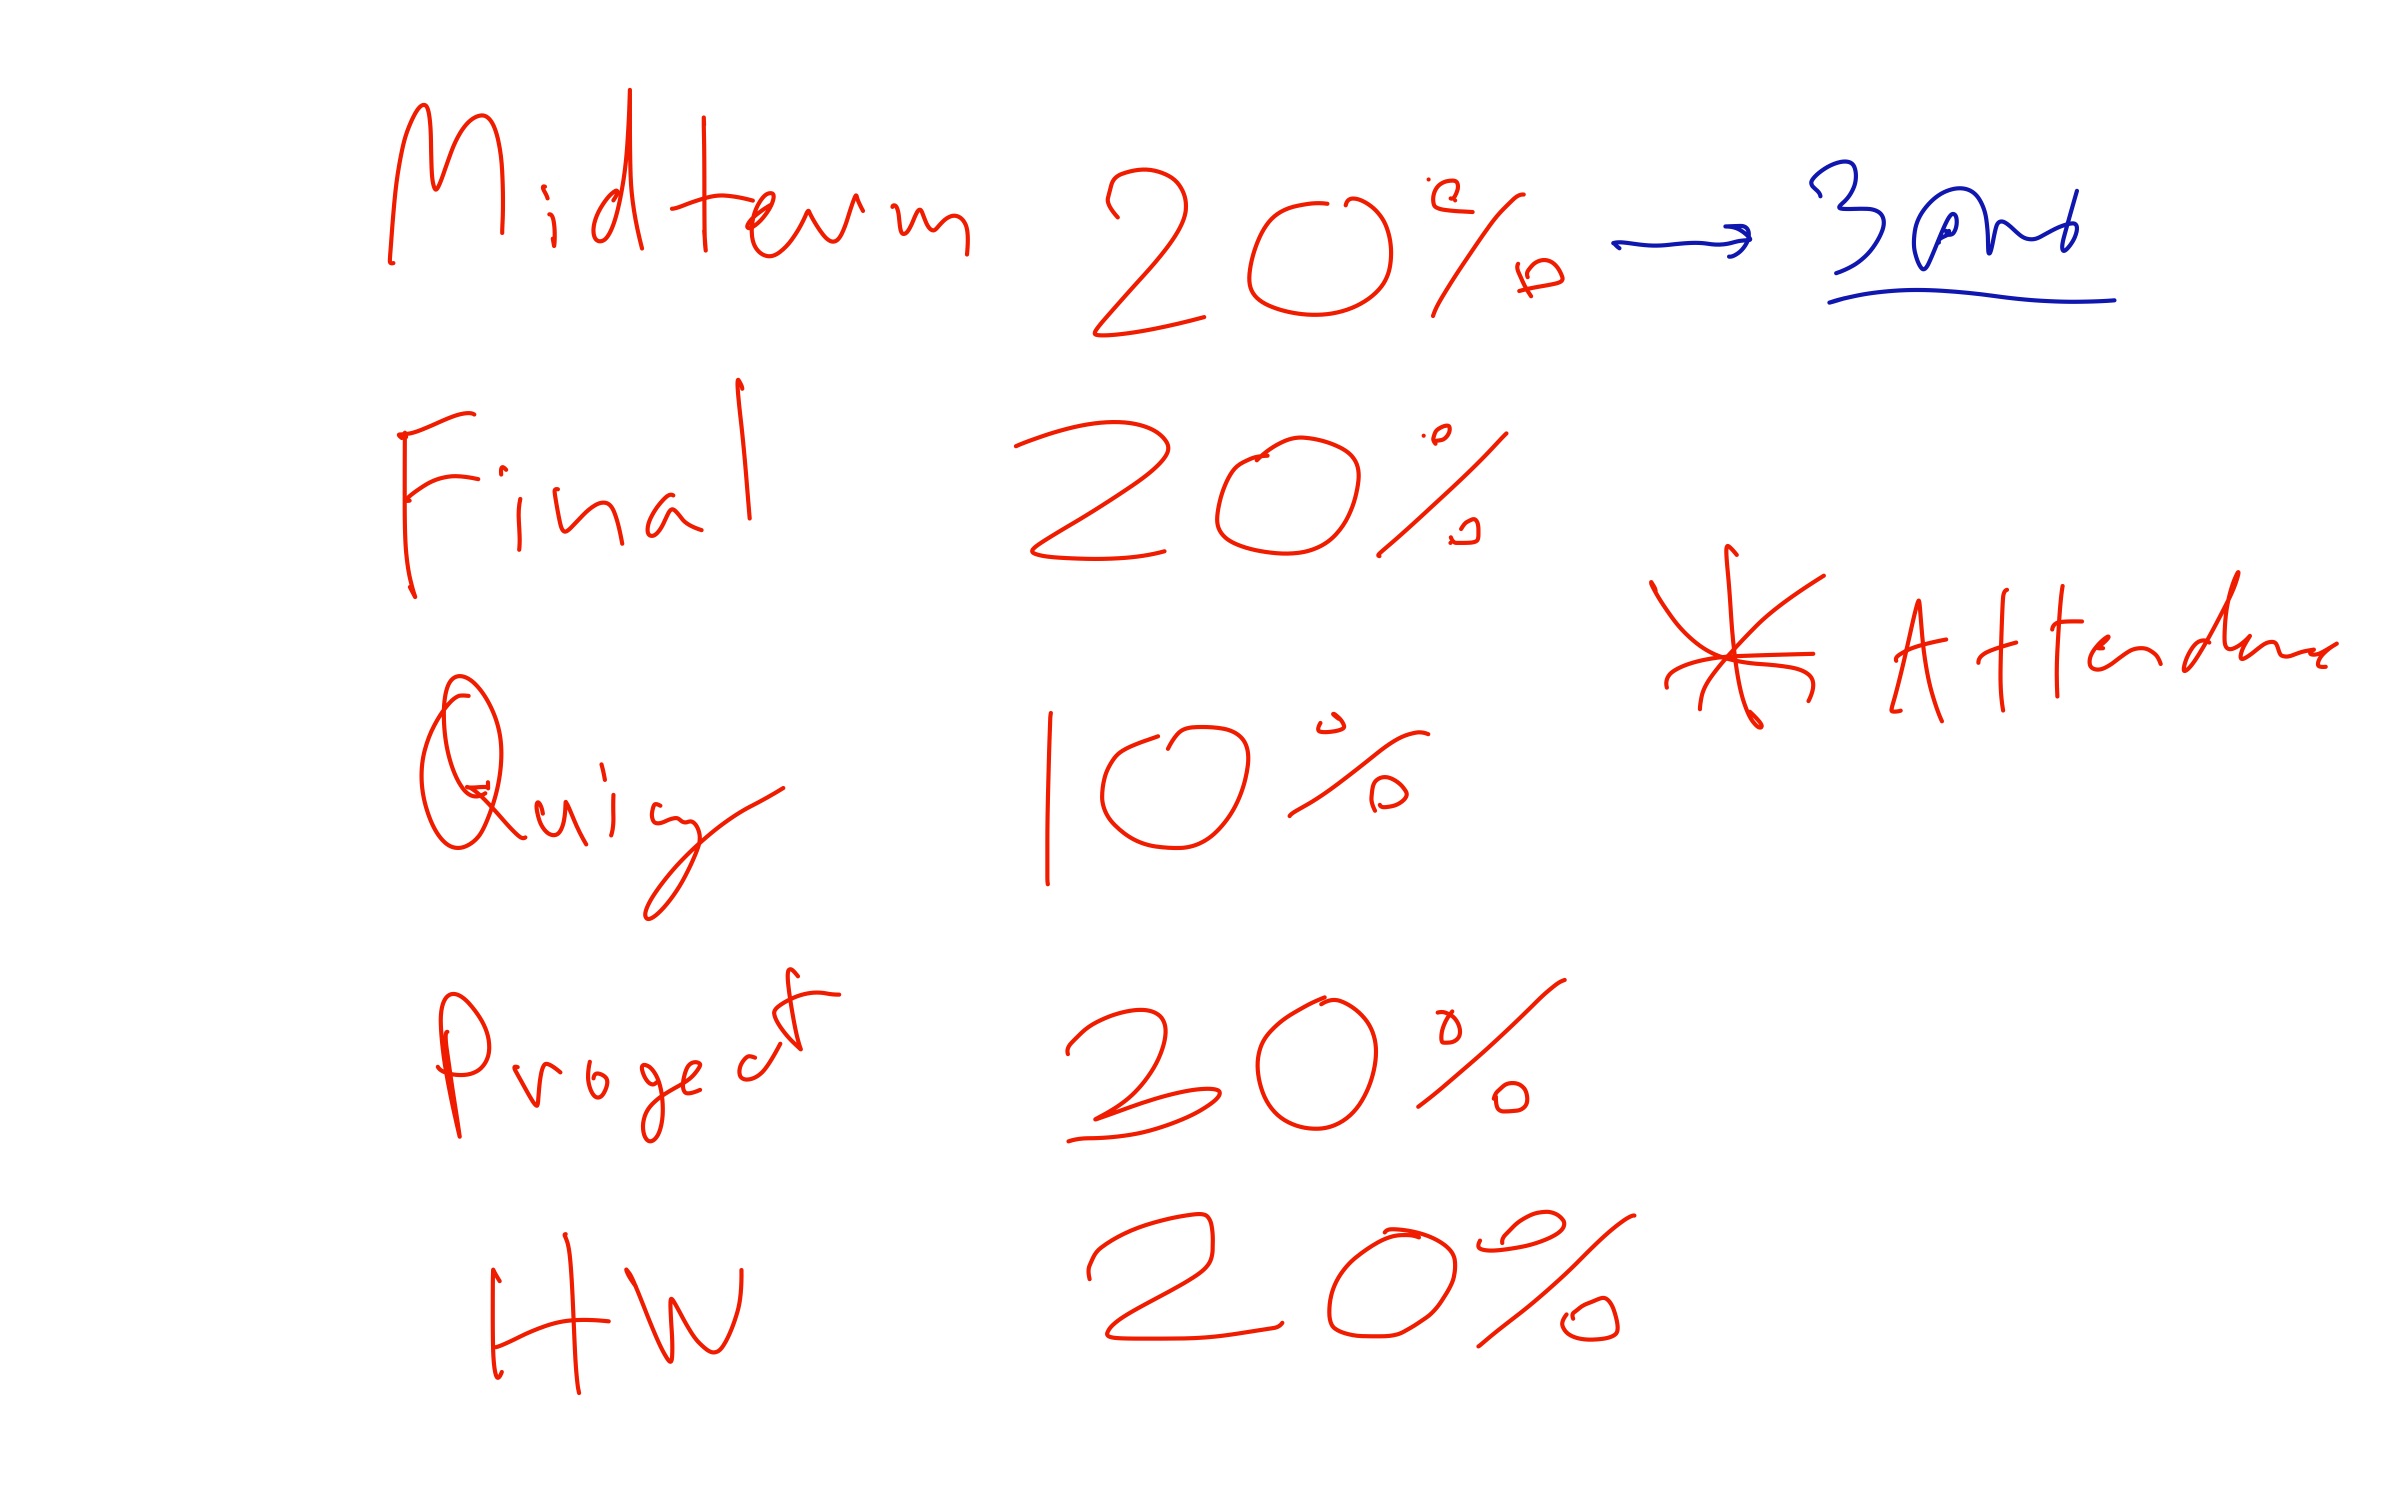 Midterm 20% → 3
Final 20%
* Attendance
Quiz 10%
Project 30%
HW 20%